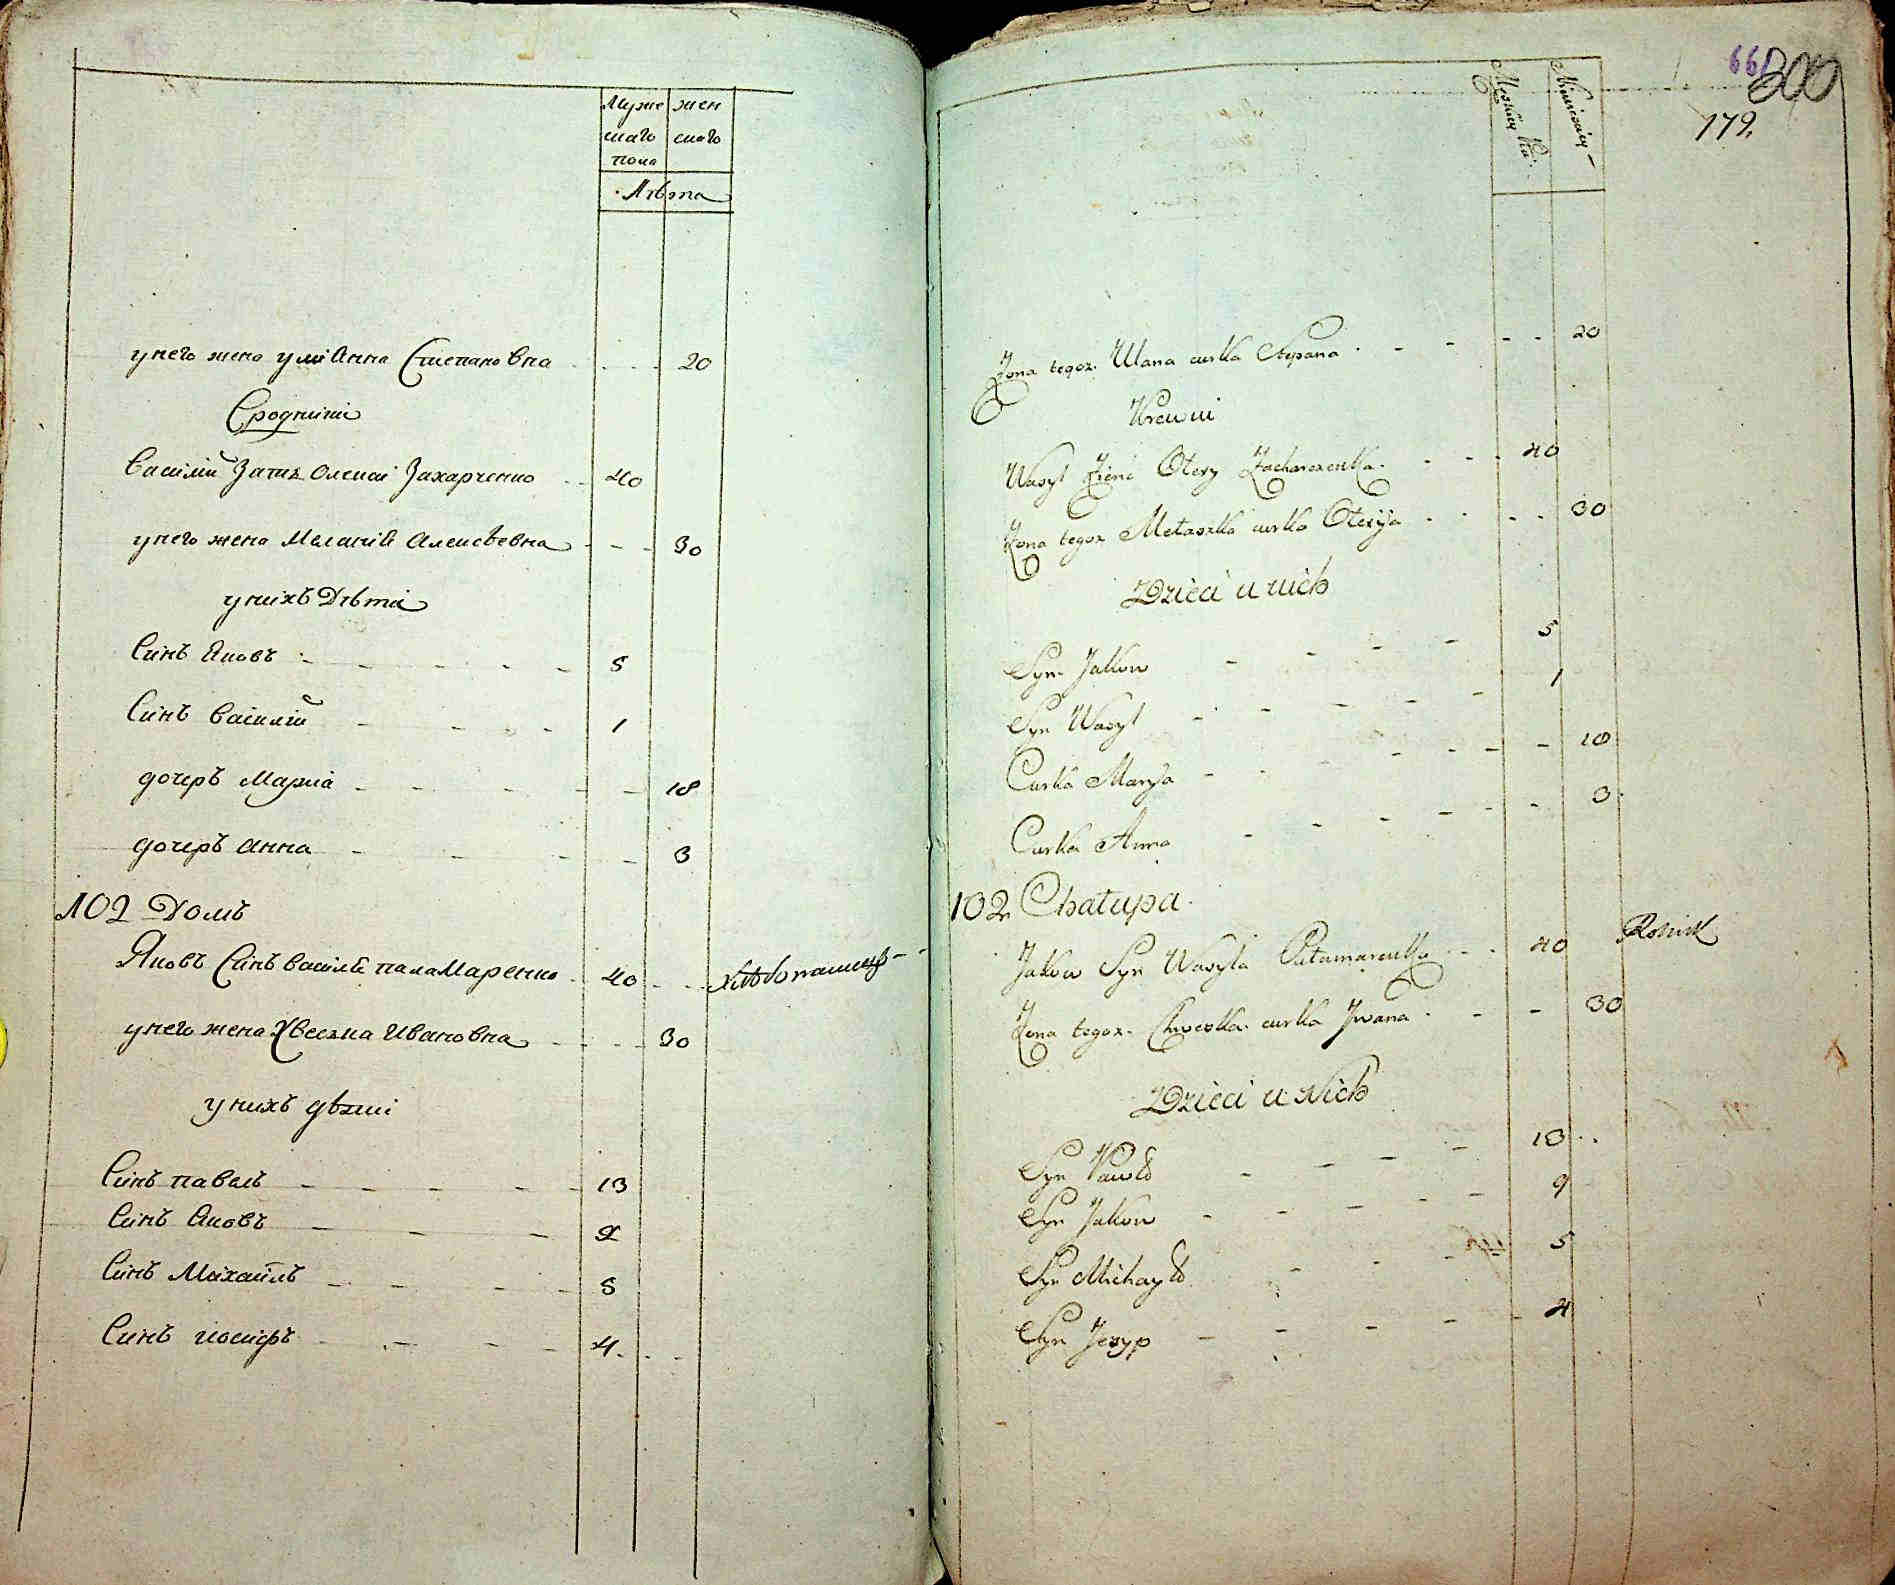 Муже жен
скаго скаго
пола
Лѣта
у него жена улиАнна Степановна 20
Сродники
Василий Зать Олекси Захарченко 40
у него жена Меланія Алексѣевна 30
у нихъ Дѣти
Синъ Яковъ 5
Синъ Василій 1
дочеръ Мариа 10
дочеръ Анна 3
102 Домъ
Яковъ Синъ Василія паламаренко 40 хлѣбопашецъ
у него жена Хвеска Ивановна 30
у нихъ дѣти
Синъ павелъ 13
Синъ Яковъ 9
Синъ Михаилъ 5
Синъ иосифъ 4
661
200
179.
Żona tegoż Ulana curka Stepana 20
Krewni
Wasyl Zienć Olexy Zacharczenka 40
Żona tegoż Melaszka curka Olexija 30
Dzieci u nich
Syn Jakow 5
Syn Wasyl 1
Curka Marya 10
Curka Anna 3
102 Chałupa
Jakow Syn Wasyla Pałamarenka 40 Rolnik
Żona tegoż Chweska curka Jwana 30
Dzieci u Nich
Syn Pawło 13
Syn Jakow 9
Syn Michayło 5
Syn Jozyp 4